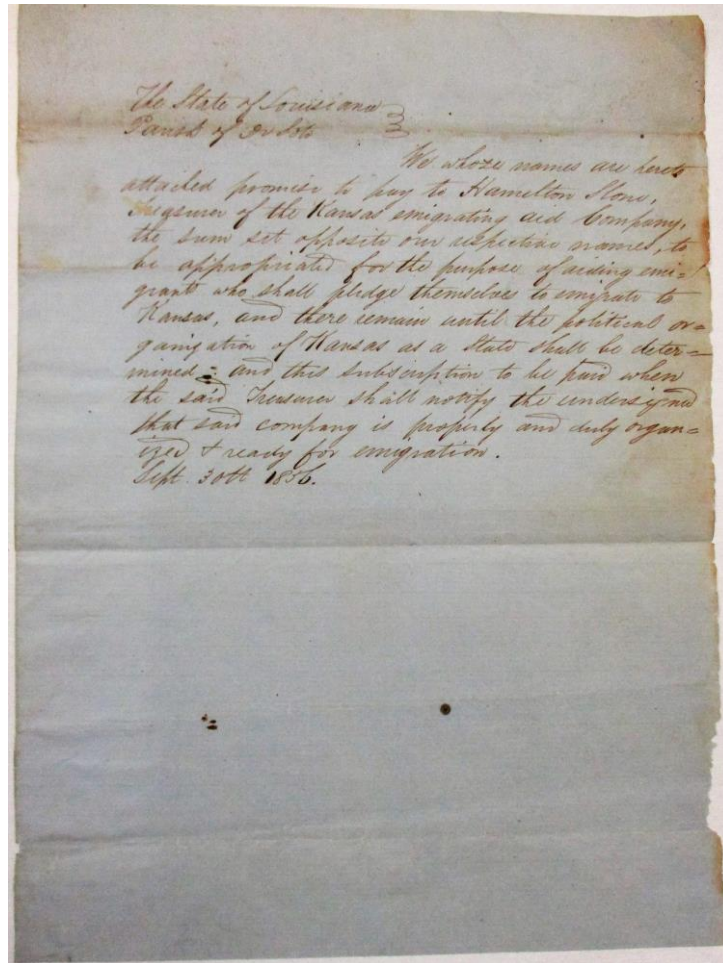 The State of Louisiana
Parish of De Soto
We whose names are hereto
attached promise to pay to Hamelton Slone,
Treasurer of the Kansas emigrating aid Company,
the sum set opposite our respective names, to
be appropriated for the purpose of aiding emi=
grant who shall pledge themselves to emigrate to
Kansas, and there remain until the political or=
ganization of Kansas as a State shall be deter=
mined = and this subscription to be paid when
the said Treasurer shall notify the undersigned
that said company is properly and duly organ=
ized & ready for emigration.
Sept. 30th 1856.